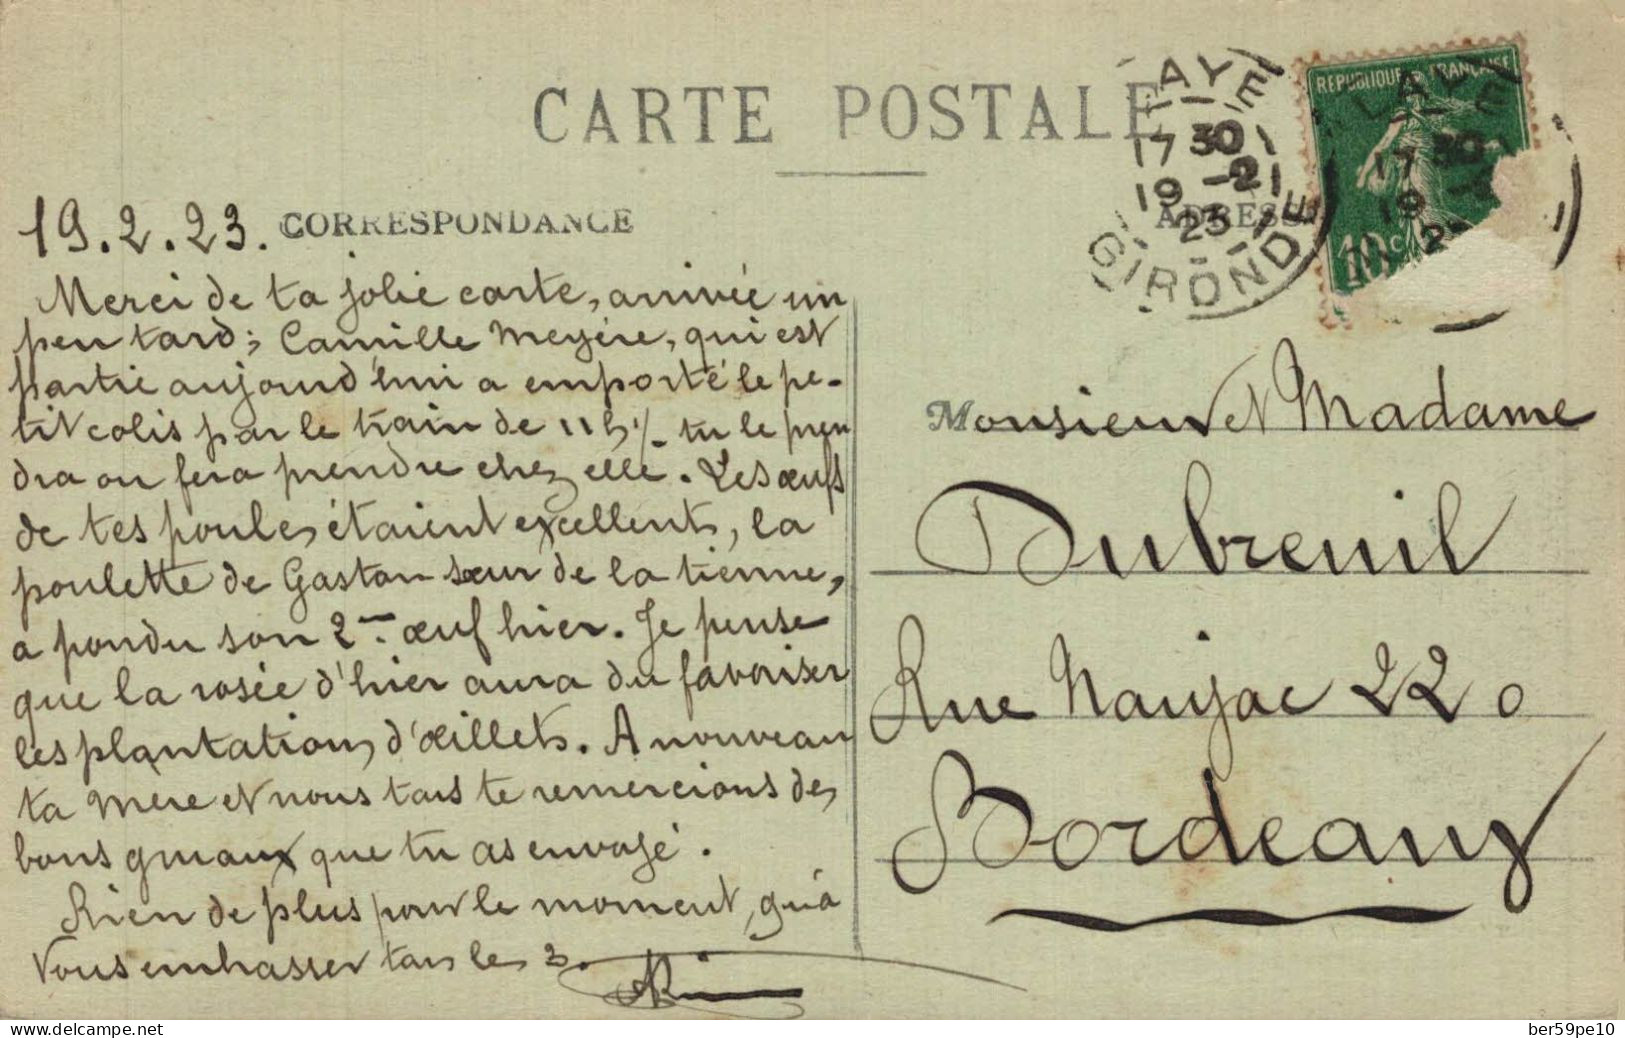 CARTE POSTALE
CORRESPONDANCE
19.2.23.
Merci de ta jolie carte, arrivée un
peu tard; Camille Meyère, qui est
partie aujourd'hui a emporté le pe-
tit colis par le train de 11h½ tu le pren
dra ou fera prendre chez elle. Les œufs
de tes poules étaient excellents, la
poulette de Gaston sœur de la tienne,
a pondu son 2me œuf hier. Je pense
que la rosée d'hier aura du favoriser
les plantations d'œillets. A nouveau
ta mère et nous tous te remercions des
bons que tu as envoyé.
Rien de plus pour le moment, qu'à
vous embrasser tous les 3.
ADRESSE
REPUBLIQUE FRANÇAISE
10c
LAYE
17 30
19 -2
23
GIRONDE
Monsieur et Madame
Dubreuil
Rue Naujac 220
Bordeaux
www.delcampe.net
ber59pe10